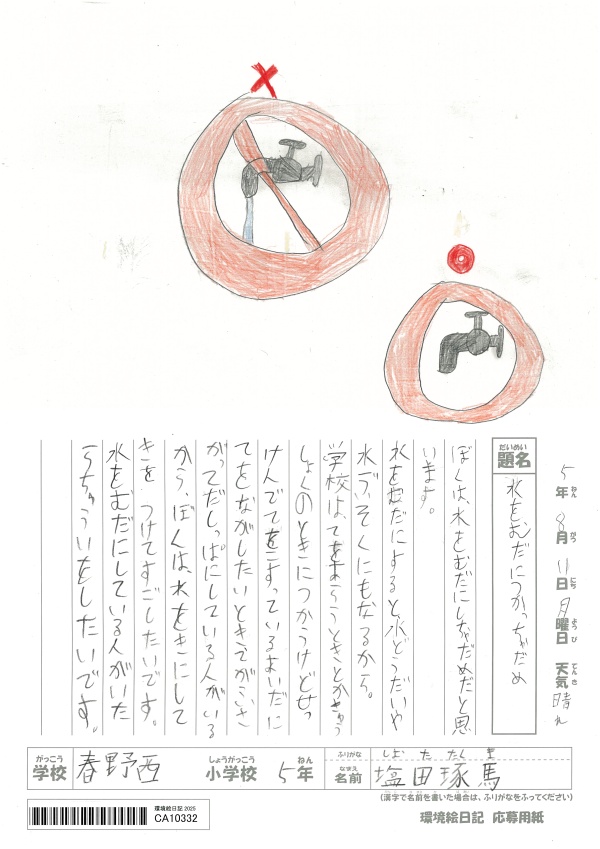 5年 8月 11日 月曜日 天気 晴れ
ねん がつ にち ようび てんき
だいめい
題名 水をむだにつかっちゃだめ
ぼくは、水をむだにしちゃだめだと思
います。
水をむだにすると、水どうだいや
水ぶそくにもなるから。
学校は、てをあらうときとかきゅう
しょくのときにつかうけどせっ
けんでてをこすっているあいだに
てをながしたいときてがふさ
がってだしっぱにしている人がいる
から、ぼくは、水をきにして
きをつけてすごしたいです。
水をむだにしている人がいた
らちゅういをしたいです。
がっこう しょうがっこう ねん ふりがな た たく ま
学校 春野西 小学校 5年 なまえ 名前 塩田琢馬
(漢字で名前を書いた場合は、ふりがなをふってください)
環境絵日記 2025
CA10332
環境絵日記 応募用紙